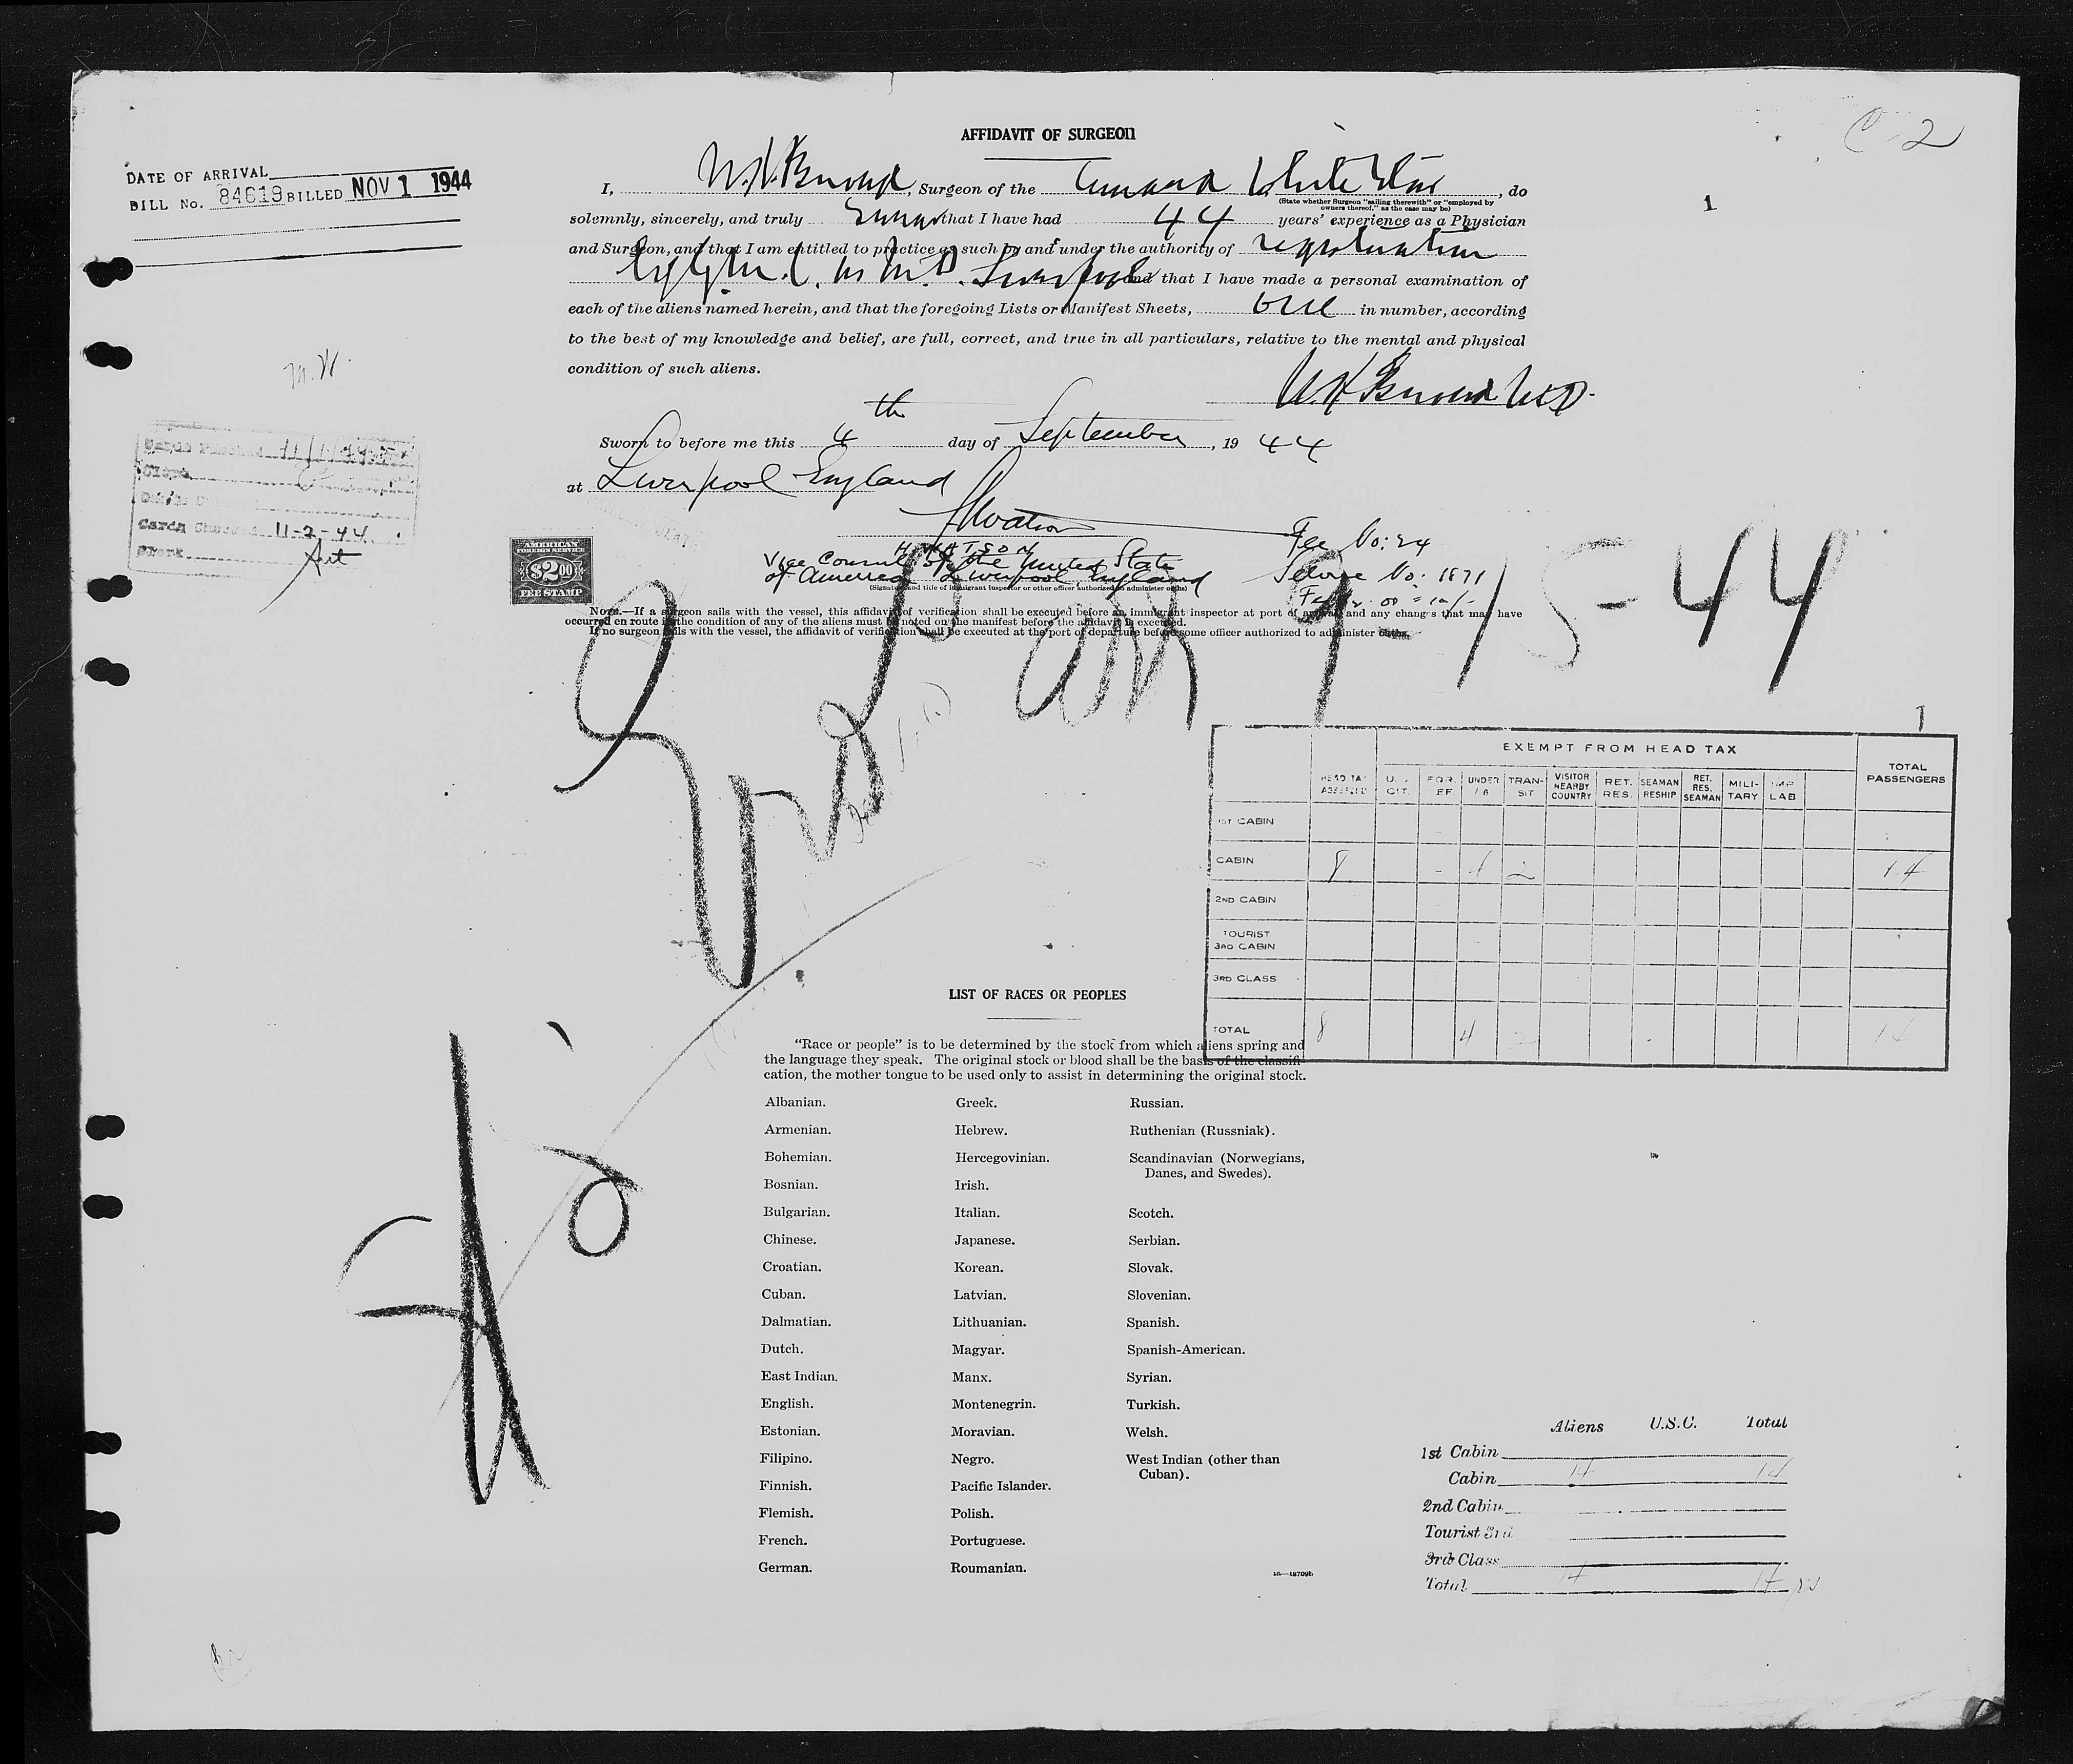 C 2
AFFIDAVIT OF SURGEON
DATE OF ARRIVAL
BILL No. 84619 BILLED NOV 1 1944
I, Surgeon of the Cunard White Star, do
(State whether Surgeon "sailing therewith" or "employed by
owners thereof," as the case may be)
1
solemnly, sincerely, and truly that I have had 44 years' experience as a Physician
and Surgeon, and that I am entitled to practice as such by and under the authority of registration
Liverpool and that I have made a personal examination of
each of the aliens named herein, and that the foregoing Lists or Manifest Sheets, one in number, according
to the best of my knowledge and belief, are full, correct, and true in all particulars, relative to the mental and physical
condition of such aliens.
M.W.
Sworn to before me this 4th day of September, 19 44
at Liverpool England
Cards 11-2-44
Art
H. WATSON
Vice Consul of the United State
of America Liverpool, England
(Signature and title of immigrant inspector or other officer authorized to administer oaths)
Fee No: 24
Service No: 1871
AMERICAN
FOREIGN SERVICE
$2.00
FEE STAMP
9-15-44
NOTE.—If a surgeon sails with the vessel, this affidavit of verification shall be executed before an immigrant inspector at port of arrival and any changes that may have
occurred en route in the condition of any of the aliens must be noted on the manifest before the affidavit is executed.
If no surgeon sails with the vessel, the affidavit of verification shall be executed at the port of departure before some officer authorized to administer oaths.
1
EXEMPT FROM HEAD TAX
HEAD TAX ASSESSED U.S. CIT. FOR. UNDER 16 TRANSIT VISITOR NEARBY COUNTRY RET. RES. SEAMAN RESHIP RET. RES. SEAMAN MILITARY IMP LAB TOTAL PASSENGERS
1ST CABIN
CABIN 8 4 2 14
2ND CABIN
TOURIST
3RD CABIN
3RD CLASS
TOTAL 8 4 2 14
LIST OF RACES OR PEOPLES
"Race or people" is to be determined by the stock from which aliens spring and
the language they speak. The original stock or blood shall be the basis of the classifi-
cation, the mother tongue to be used only to assist in determining the original stock.
Albanian. Greek. Russian.
Armenian. Hebrew. Ruthenian (Russniak).
Bohemian. Hercegovinian. Scandinavian (Norwegians,
Danes, and Swedes).
Bosnian. Irish.
Bulgarian. Italian. Scotch.
Chinese. Japanese. Serbian.
Croatian. Korean. Slovak.
Cuban. Latvian. Slovenian.
Dalmatian. Lithuanian. Spanish.
Dutch. Magyar. Spanish-American.
East Indian. Manx. Syrian.
English. Montenegrin. Turkish.
Estonian. Moravian. Welsh.
Filipino. Negro. West Indian (other than
Cuban).
Finnish. Pacific Islander.
Flemish. Polish.
French. Portuguese.
German. Roumanian.
Aliens U.S.C. Total
1st Cabin
Cabin 14 14
2nd Cabin
Tourist 3rd
3rd Class
Total 14 14